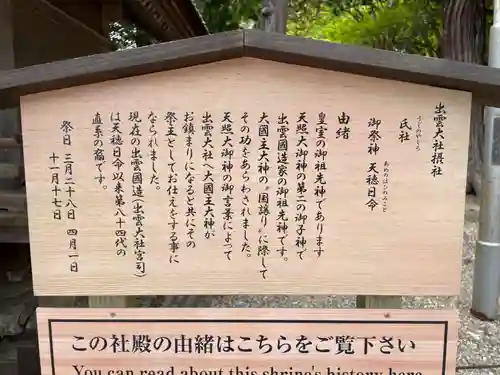 出雲大社摂社
氏社
うじのやしろ
御祭神 天穂日命
あめのほひのみこと
由緒
皇室の御祖先神であります
天照大御神の第二の御子神で
出雲國造家の御祖先神です。
大國主大神の〝國譲り〟に際して
その功をあらわされました。
天照大御神の御言葉によって
出雲大社へ大國主大神が
お鎮まりになると共にその
祭主としてお仕えをする事に
なられました。
現在の出雲國造(出雲大社宮司)
は天穂日命以来第八十四代の
直系の裔です。
祭日 三月二十八日 四月一日
十一月十七日
この社殿の由緒はこちらをご覧下さい
You can read about this shrine's history here